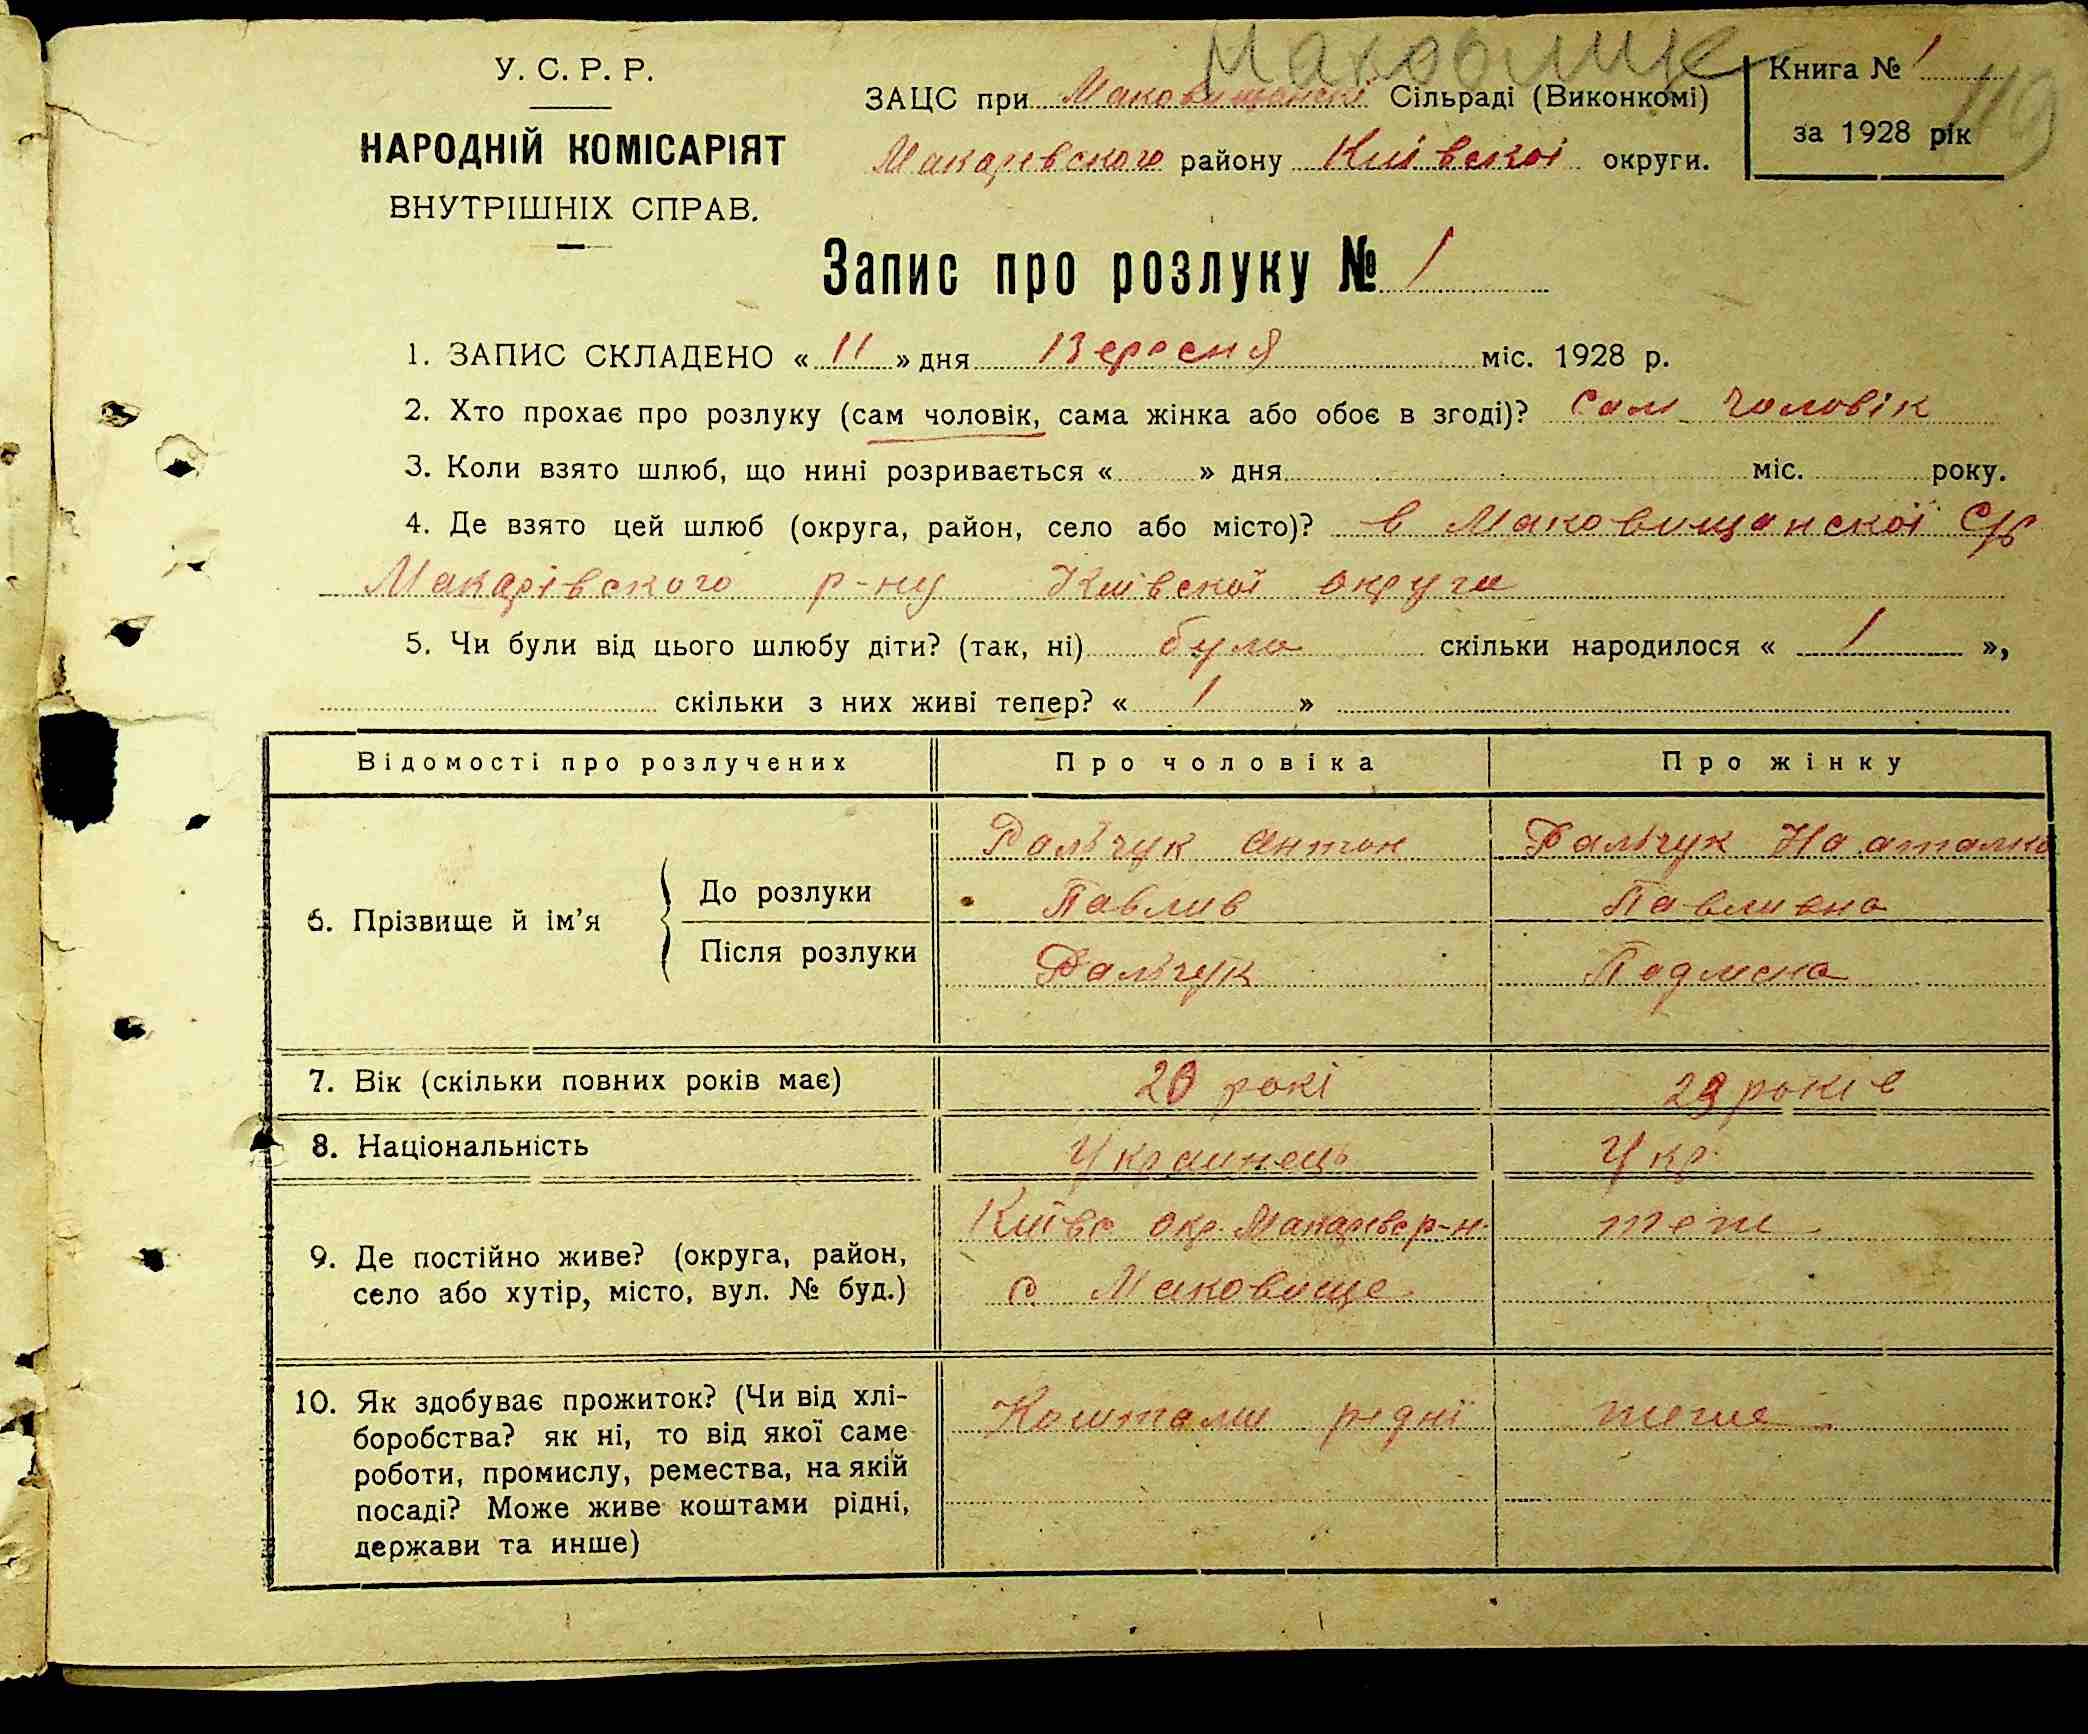 Маковище
У. С. Р. Р.
НАРОДНІЙ КОМІСАРІЯТ
ВНУТРІШНІХ СПРАВ.
ЗАЦС при Маковищанскі Сільраді (Виконкомі)
Макарівского району Київскої округи.
Книга № 1
за 1928 рік
119
Запис про розлуку № 1
1. ЗАПИС СКЛАДЕНО « 11 » дня Вересня міс. 1928 р.
2. Хто прохає про розлуку (сам чоловік, сама жінка або обоє в згоді)? Сам чоловік
3. Коли взято шлюб, що нині розривається « » дня міс. року.
4. Де взято цей шлюб (округа, район, село або місто)? в Маковищанскої С/р
Макарівского р-ну Київскої округи
5. Чи були від цього шлюбу діти? (так, ні) була скільки народилося « 1 »,
скільки з них живі тепер? « 1 »
Відомості про розлучених Про чоловіка Про жінку
6. Прізвище й ім'я
До розлуки
Після розлуки
Дальчук Антон
Павлив
Дальчук
Дальчук Нааталка
Павливна
7. Вік (скільки повних років має) 20 рокі 23 років
8. Національність Украинець Укр.
9. Де постійно живе? (округа, район,
село або хутір, місто, вул. № буд.)
Київс окр. Макарівс р-н.
с. Маковище
теж
10. Як здобуває прожиток? (Чи від хлі-
боробства? як ні, то від якої саме
роботи, промислу, ремества, на якій
посаді? Може живе коштами рідні,
держави та инше)
Коштами рідні
теже